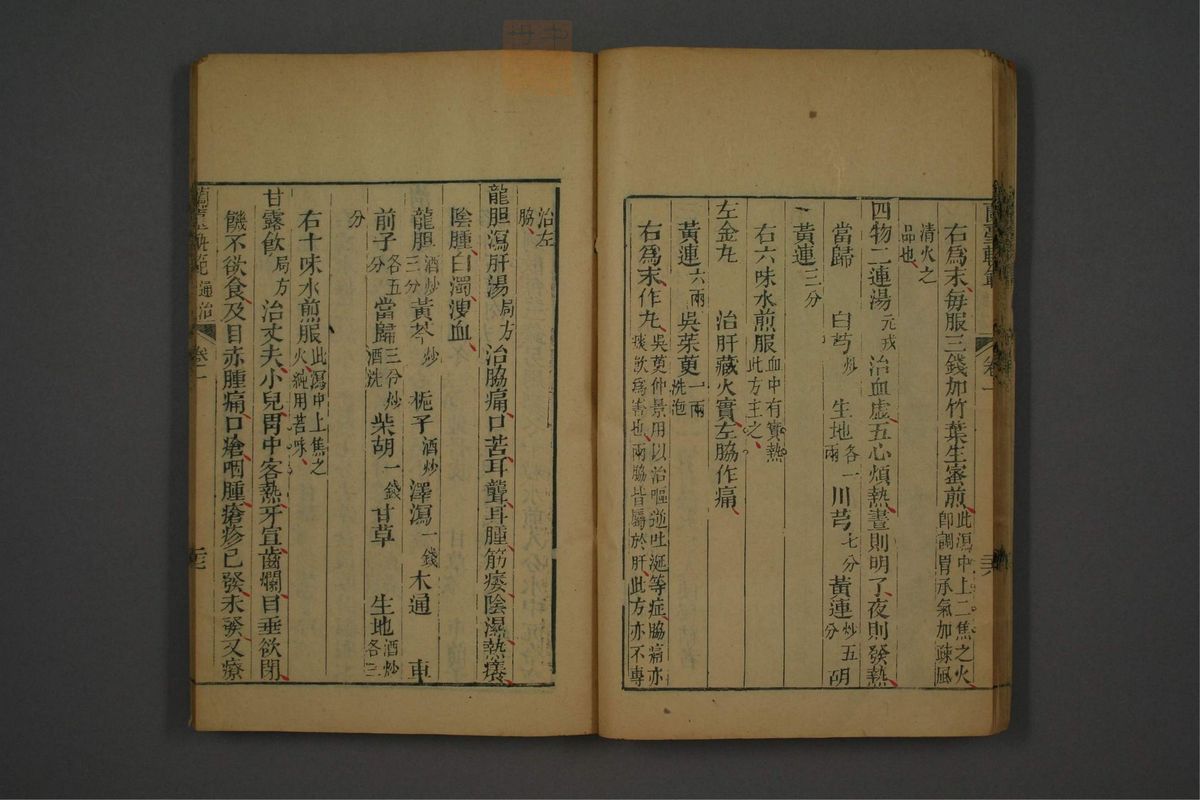 右爲末每服三錢加竹葉生蜜煎此瀉中上二焦之火卽調胃承氣加疎風
清火之品也
四物二連湯元戎治血虛五心煩熱晝則明了夜則發熱
當歸 白芍炒 生地各一兩川芎七分黃連炒五分胡
黃連三分
右六味水煎服血中有實熱此方主之
左金丸 治肝藏火實左脇作痛
黃連六兩吳茱萸一兩洗泡
右爲末作丸吳萸仲景用以治嘔逆吐涎等症脇痛亦痰飲爲害也兩脇皆屬於肝此方亦不專
卷一
治左脇
龍胆瀉肝湯局方治脇痛口苦耳聾耳腫筋痿陰濕熱癢
陰腫白濁溲血
龍胆酒炒三分黃芩炒 梔子酒炒澤瀉一錢木通 車
前子各五分當歸三分炒酒洗柴胡一錢甘草 生地酒炒各三
分
右十味水煎服此瀉中上焦之火純用苦味
甘露飲局方治丈夫小兒胃中客熱牙宣齒爛目垂欲閉
饑不欲食及目赤腫痛口瘡咽腫瘡疹已發未發又療
通治 卷一